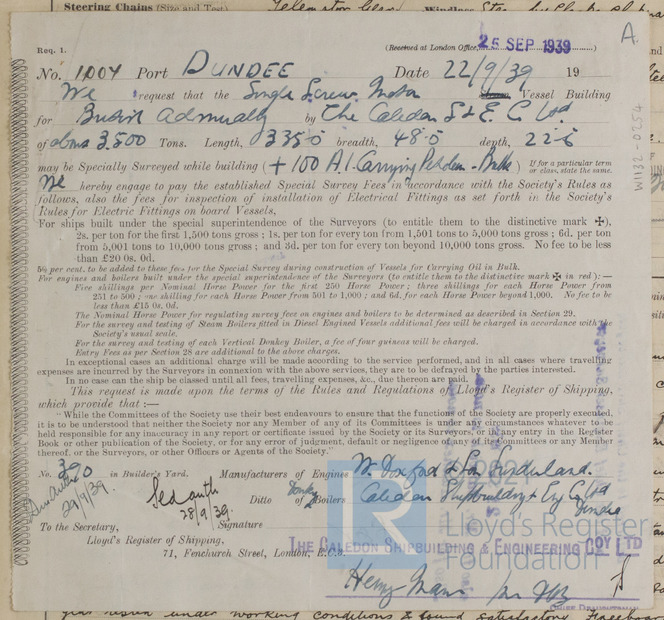 Steering Chains (Size and Test)
Req. 1.
(Received at London Office, 25 SEP 1939)
A.
No. 1,004 Port DUNDEE Date 22/9/39 19
We request that the Single Screw Motor Vessel Building
for British Admiralty by The Caledon S & E. C Ltd
of about 3,500 Tons. Length, 335-0 breadth, 48-0 depth,
may be Specially Surveyed while building ( + 100 A.1. Carrying Petroleum - Bulk )
If for a particular term or class, state the same.
We hereby engage to pay the established Special Survey Fees in accordance with the Society's Rules as
follows, also the fees for inspection of installation of Electrical Fittings as set forth in the Society's
Rules for Electric Fittings on board Vessels,
For ships built under the special superintendence of the Surveyors (to entitle them to the distinctive mark ✠),
2s. per ton for the first 1,500 tons gross; 1s. per ton for every ton from 1,501 to 5,000 tons gross; 6d. per ton
from 5,001 tons to 10,000 tons gross; and 3d. per ton for every ton beyond 10,000 tons gross. No fee to be less
than £20 0s. 0d.
5% per cent. to be added to these fees for the Special Survey during construction of Vessels for Carrying Oil in Bulk.
For engines and boilers built under the special superintendence of the Surveyors (to entitle them to the distinctive mark ✠ in red):—
Five shillings per Nominal Horse Power for the first 250 Horse Power; three shillings for each Horse Power from
251 to 500; one shilling for each Horse Power from 501 to 1,000; and 6d. for each Horse Power beyond 1,000. No fee to be
less than £15 0s. 0d.
The Nominal Horse Power for regulating survey fee on engines and boilers to be determined as described in Section 29.
For the survey and testing of Steam Boilers fitted in Diesel Engined Vessels additional fees will be charged in accordance with the
Society's usual scale.
For the survey and testing of each Vertical Donkey Boiler, a fee of four guineas will be charged.
Entry Fees as per Section 28 are additional to the above charges.
In exceptional cases an additional charge will be made according to the service performed, and in all cases where travelling
expenses are incurred by the Surveyors in connexion with the above services, they are to be defrayed by the parties interested.
In no case can the ship be classed until all fees, travelling expenses, &c., due thereon are paid.
This request is made upon the terms of the Rules and Regulations of Lloyd's Register of Shipping,
which provide that:—
"While the Committees of the Society use their best endeavours to ensure that the functions of the Society are properly executed,
it is to be understood that neither the Society nor any Member of any of its Committees is under any circumstances whatever to be
held responsible for any inaccuracy in any report or certificate issued by the Society or its Surveyors, or in any entry in the Register
Book or other publication of the Society, or for any error of judgment, default or negligence of any of its Committees or any Member
thereof, or the Surveyors, or other Officers or Agents of the Society."
No. 390 in Builder's Yard. Manufacturers of Engines W. Doxford & Son Sunderland.
Ditto Donkey of Boilers Caledon Shipbuilding & Eng Co Ltd
Dundee
29/9/39.
28/9/39.
To the Secretary, Signature
Lloyd's Register of Shipping,
71, Fenchurch Street, London, E.C.3.
THE CALEDON SHIPBUILDING & ENGINEERING COY LTD
Henry Main
CHIEF DRAUGHTSMAN
W1132-0254
Lloyd's Register
Foundation
year under working conditions & found satisfactory